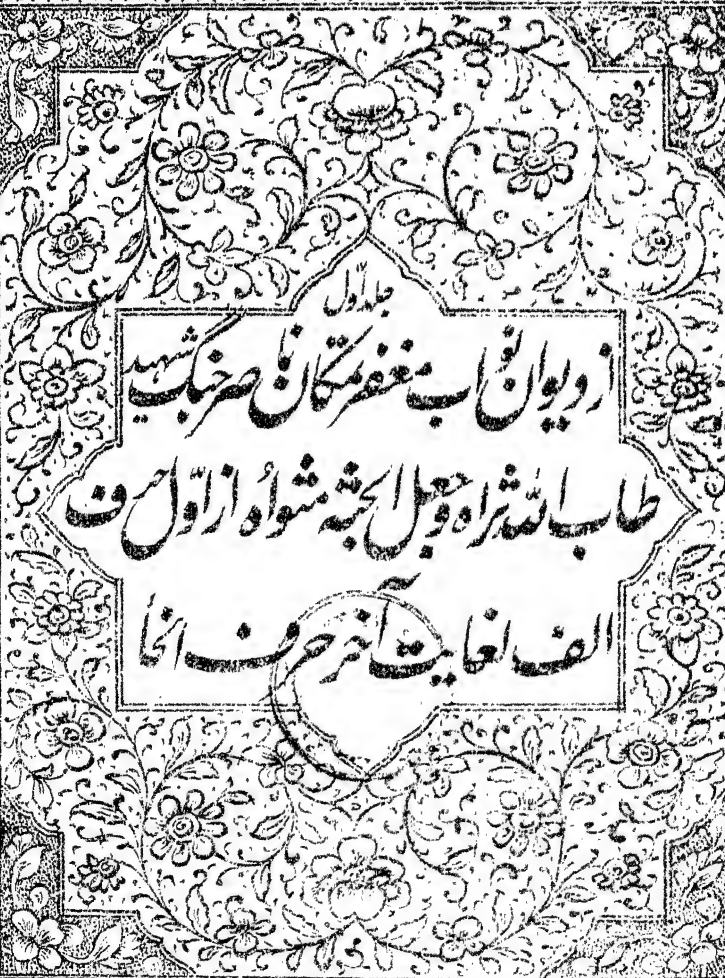 جلد اول
از دیوان نواب مغفرتمکان ناصر جنگ شهید
طاب الله ثراه و جعل الجنة مثواه از اول حرف
الف لغایت آخر حرف الخا